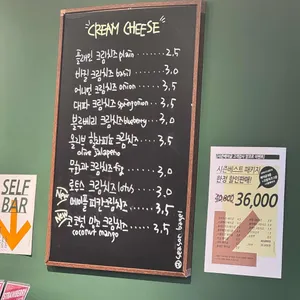 CREAM CHEESE
플레인 크림치즈 plain ... 2.5
바질 크림치즈 basil ... 3.0
어니언 크림치즈 onion ... 3.5
대파 크림치즈 spring onion ... 3.5
블루베리 크림치즈 blueberry ... 3.0
올리브 할라피뇨 크림치즈 ... 3.5
olive jalapeno
무화과 크림치즈 fig ... 3.5
로투스 크림치즈 lotus ... 3.0
메이플 피칸 크림치즈 ... 3.5
코코넛 망고 크림치즈 ... 3.5
coconut mango
season bagel
SELF
BAR
시즌베스트 패키지
한정 할인판매!
36,000